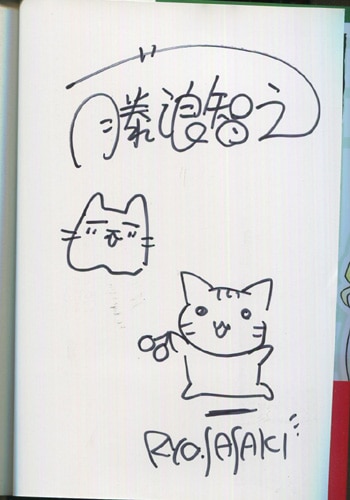 藤浪智之
RYO.SASAKI